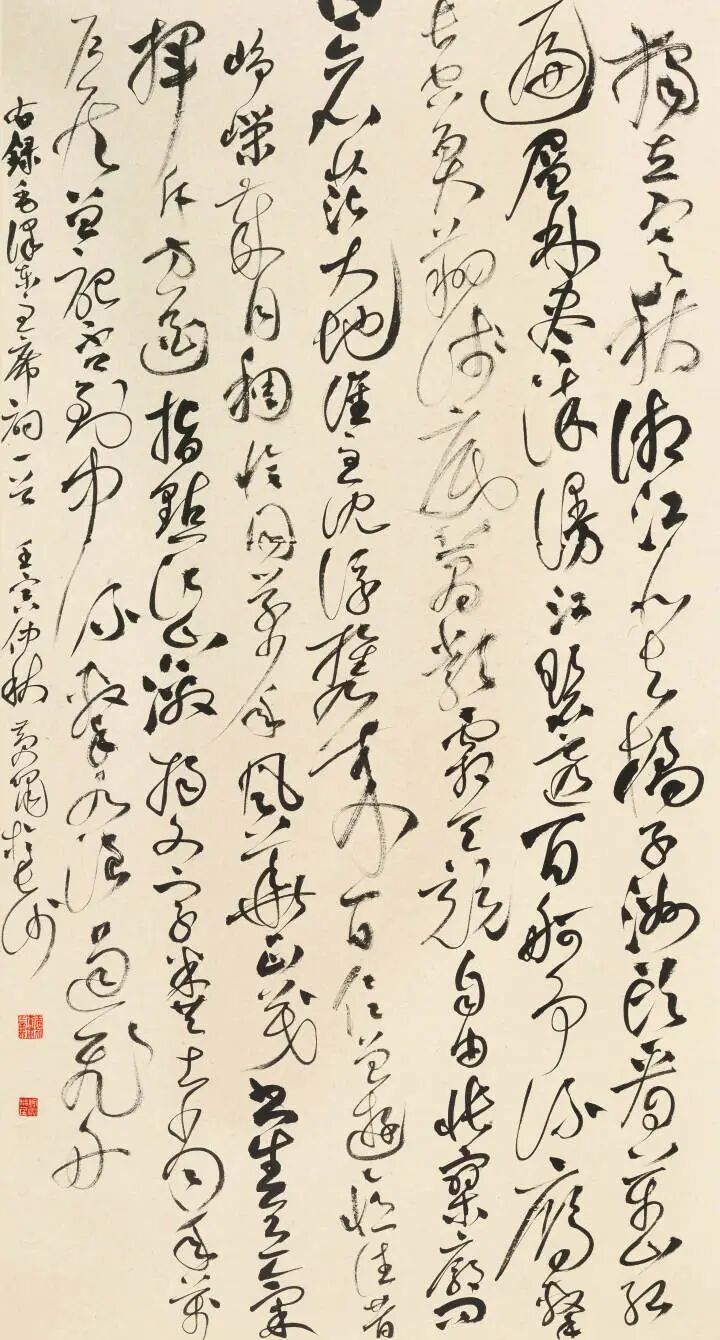 獨立寒秋湘江北去橘子洲頭看萬山紅
遍層林盡染漫江碧透百舸爭流鷹擊
長空魚翔淺底萬類霜天競自由悵寥廓問
蒼茫大地誰主沈浮攜來百侶曾遊憶往昔
崢嶸歲月稠恰同學少年風華正茂書生意氣
揮斥方遒指點江山激揚文字糞土當年萬
戶侯曾記否到中流擊水浪遏飛舟
右錄毛澤東主席詞一首 壬寅仲秋 黃 於長沙